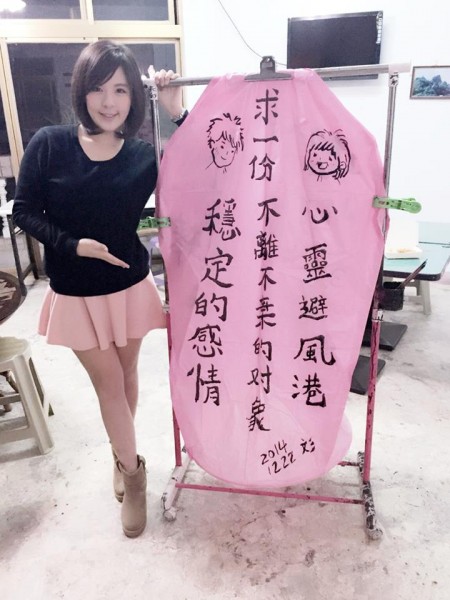 心靈避風港
求一份不離不棄的对象
穩定的感情
2014
1222